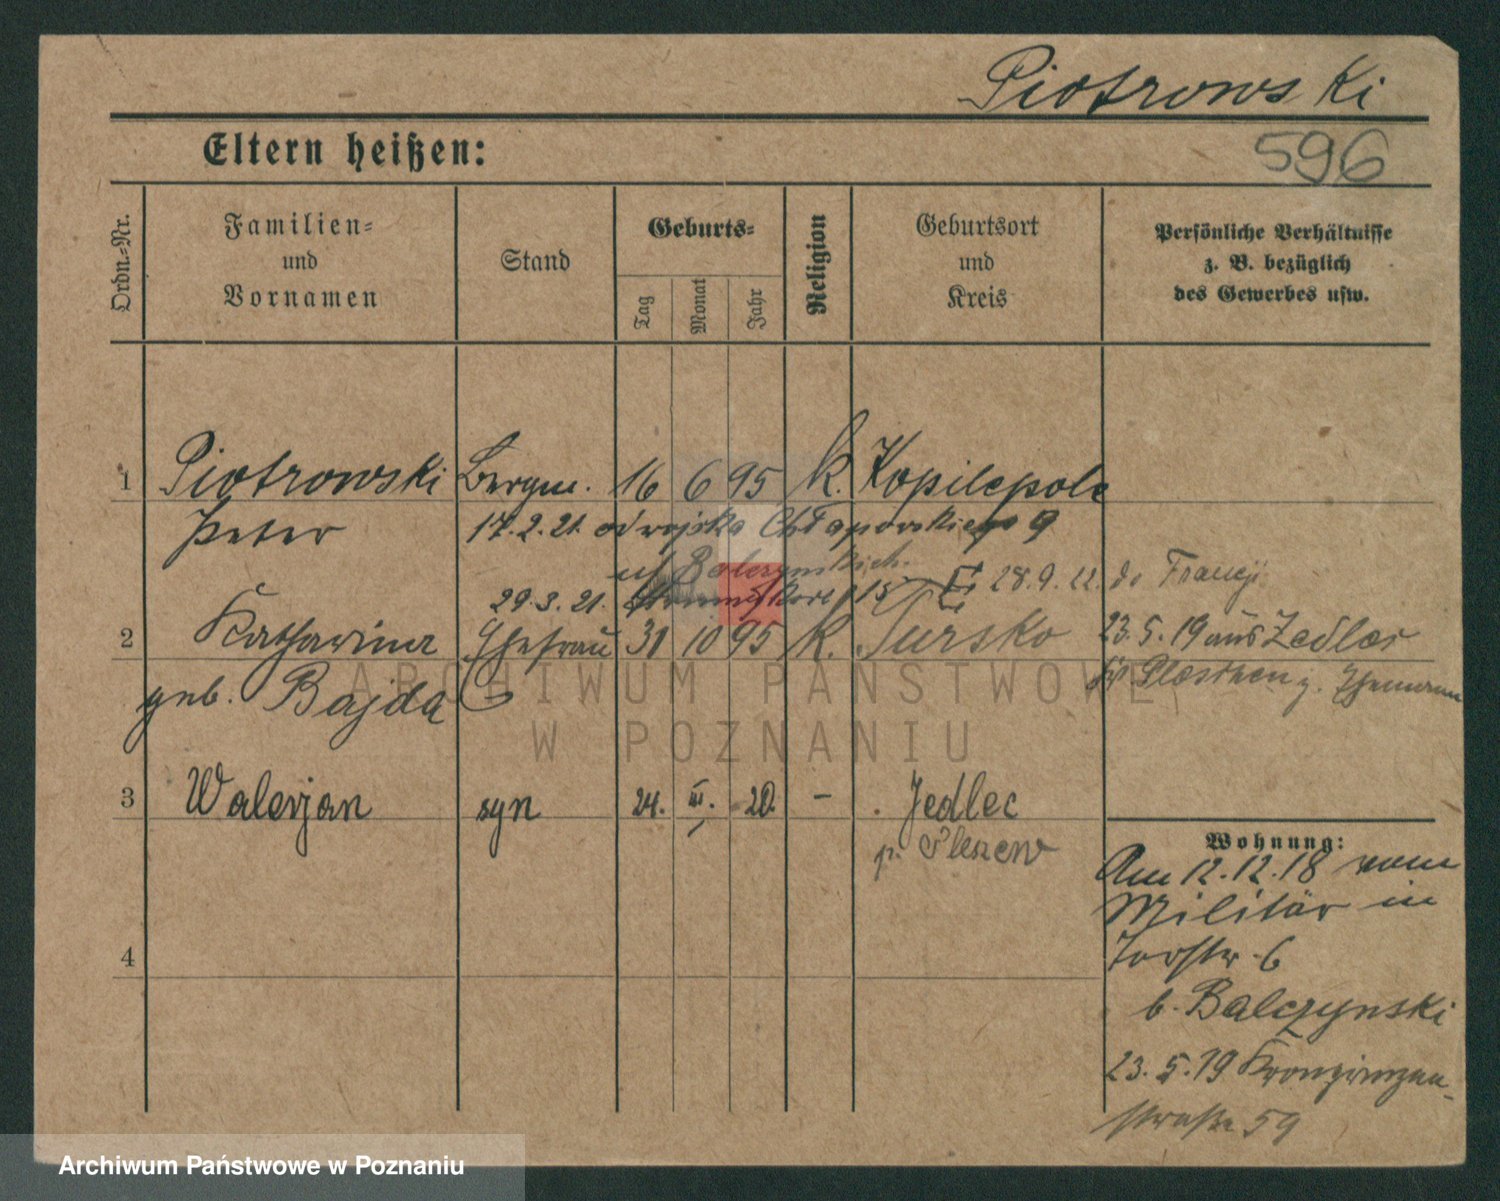 Piotrowski
Eltern heißen:
596
Ordn.-Nr.
Familien-
und
Vornamen
Stand
Geburts-
Tag
Monat
Jahr
Religion
Geburtsort
und
Kreis
Persönliche Verhältnisse
z. B. bezüglich
des Gewerbes usw.
1 Piotrowski Bergm. 16 6 95 k. Kopilepole
Peter 17.2.21. od wojska Chłapowskiego 9
u/ Balczynskich.
29.3.21. 15 28.9.22. do Francji
2 Katharina Ehefrau 31 10 95 k. Tursko 23.5.19 aus Zedlec
geb. Bajda Pleschen z. Ehemann
ARCHIWUM PAŃSTWOWE
W POZNANIU
3 Walerjan syn 24. III. 20. – Jedlec
p. Pleszew
Wohnung:
Am 12.12.18 vom
Militär in
Torstr. 6
b. Balczynski
4
23.5.19 Kronprinzen-
straße 59
Archiwum Państwowe w Poznaniu